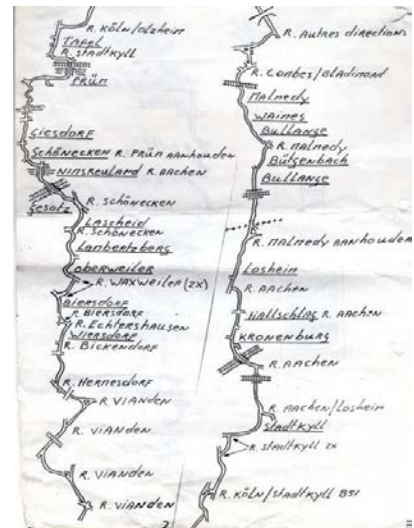 R. KÖLN/OLZHEIM
TAFEL
R. STADTKYLL
PRÜM
GIESDORF
SCHÖNECKEN R. PRÜM AANHOUDEN
NIMSREULAND R. AACHEN
R. SCHÖNECKEN
LASCHEID
R. SCHÖNECKEN
LAMBERTZBERG
OBERWEILER
R. WAXWEILER (2X)
BIERSDORF
R. BIERSDORF
R. ECHTERSHAUSEN
WIERSDORF
R. BICKENDORF
R. HERMESDORF
R. VIANDEN
R. VIANDEN
R. VIANDEN
R. VIANDEN
R. AUTRES DIRECTIONS
MALMEDY
WAIMES
BULLANGE
R. MALMEDY
BÜTGENBACH
BULLANGE
R. MALMEDY AANHOUDEN
LOSHEIM
R. AACHEN
HALLSCHLAG R. AACHEN
KRONENBURG
R. AACHEN
R. AACHEN/LOSHEIM
STADTKYLL
R. STADTKYLL 2X
R. KÖLN/STADTKYLL B51